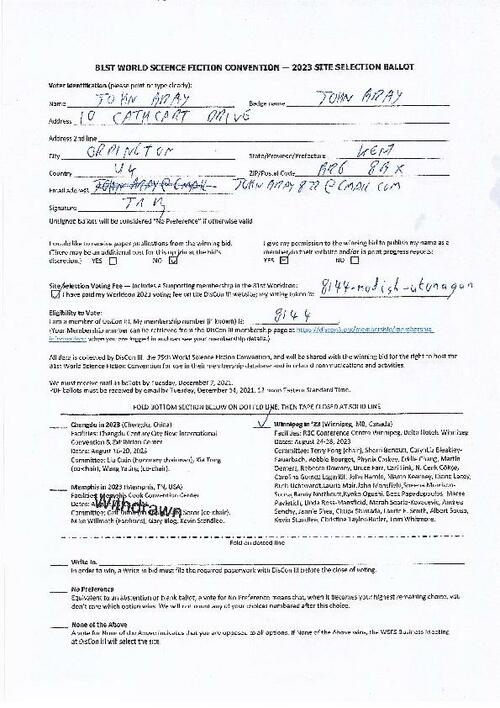 81ST WORLD SCIENCE FICTION CONVENTION — 2023 SITE SELECTION BALLOT
Voter Identification (please print or type clearly):
Name JOHN ARAY Badge name JOHN ARAY
Address 10 CATHCART DRIVE
Address 2nd line
City ORPINGTON State/Province/Prefecture KEM
Country UK ZIP/Postal Code BR6 8BX
Email address
Signature
Unsigned ballots will be considered "No Preference" if otherwise valid
I would like to receive paper publications from the winning bid. I give my permission to the winning bid to publish my name as a
(There may be an additional cost for this up to at the bid's member on their website and/or in print progress reports.
discretion.) YES NO YES NO
Site Selection Voting Fee — Includes a Supporting membership in the 81st Worldcon.
I have paid my Worldcon 2023 voting fee on the DisCon III website; my voting token is: 8144-modish-
Eligibility to Vote:
I am a member of DisCon III. My membership number (if known) is: 8144
(Your membership number can be retrieved from the DisCon III membership page at
when you are logged in and can see your membership details.)
All data is collected by DisCon III, the 79th World Science Fiction Convention, and will be shared with the winning bid for the right to host the
81st World Science Fiction Convention for use in their membership database and in related communications and activities.
We must receive mail in ballots by Tuesday, December 7, 2021.
PDF ballots must be received by email by Tuesday, December 14, 2021, 12 noon Eastern Standard Time.
FOLD BOTTOM SECTION BELOW ON DOTTED LINE, THEN TAPE CLOSED AT SOLID LINE
Chengdu in 2023 (Chengdu, China)
Facilities: Chengdu Century City New International
Convention & Exhibition Center
Dates: August 16-20, 2023
Committee: Liu Cixin (honorary chairman), Xia Tong
(co-chair), Wang Yating (co-chair).
Memphis in 2023 (Memphis, TN, USA)
Facilities: Memphis Cook Convention Center
Withdrawn
Mike Willmoth (Facilities), Gary Blog, Kevin Standlee.
Winnipeg in '23 (Winnipeg, MB, Canada)
Facilities: RBC Conference Centre Winnipeg, Delta Hotels Winnipeg
Dates: August 24-28, 2023
Committee: Terry Fong (chair),
Kevin Standlee, Christine Taylor-Butler, Tom Whitmore.
Fold on dotted line
Write In
In order to win, a Write in bid must file the required paperwork with DisCon III before the close of voting.
No Preference
Equivalent to an abstention or blank ballot, a vote for No Preference means that, when it becomes your highest remaining choice, you
don't care which option wins. We will not count any of your choices numbered after this choice.
None of the Above
A vote for None of the Above indicates that you are opposed to all options. If None of the Above wins, the WSFS Business Meeting
at DisCon III will select the site.